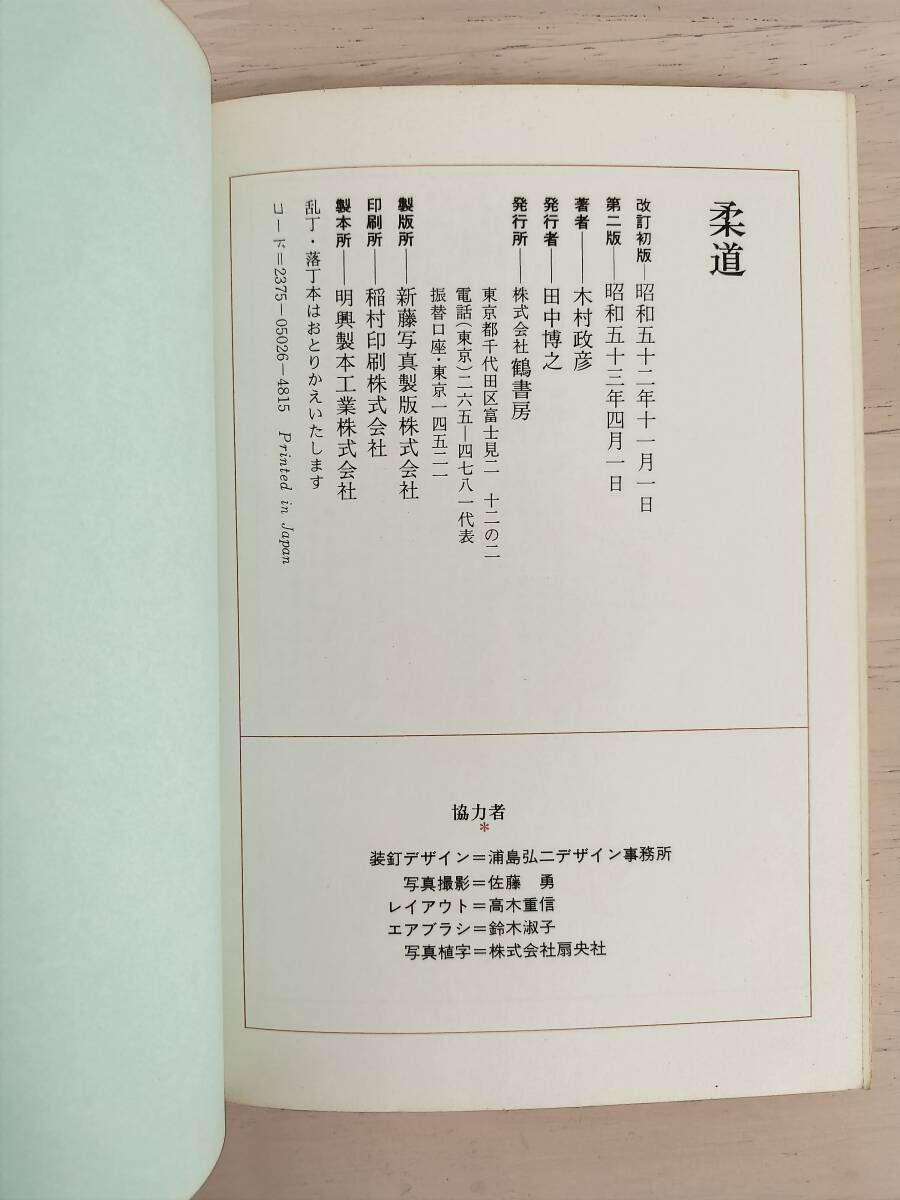 柔道
改訂初版―昭和五十二年十一月一日
第二版―昭和五十三年四月一日
著者―木村政彦
発行者―田中博之
発行所―株式会社鶴書房
東京都千代田区富士見二ノ十二の二
電話(東京)二六五―四七八一代表
振替口座・東京一四五二一
製版所―新藤写真製版株式会社
印刷所―稲村印刷株式会社
製本所―明興製本工業株式会社
乱丁・落丁本はおとりかえいたします
コード＝2375―05026―4815 Printed in Japan
協力者
*
装釘デザイン＝浦島弘二デザイン事務所
写真撮影＝佐藤 勇
レイアウト＝高木重信
エアブラシ＝鈴木淑子
写真植字＝株式会社扇央社